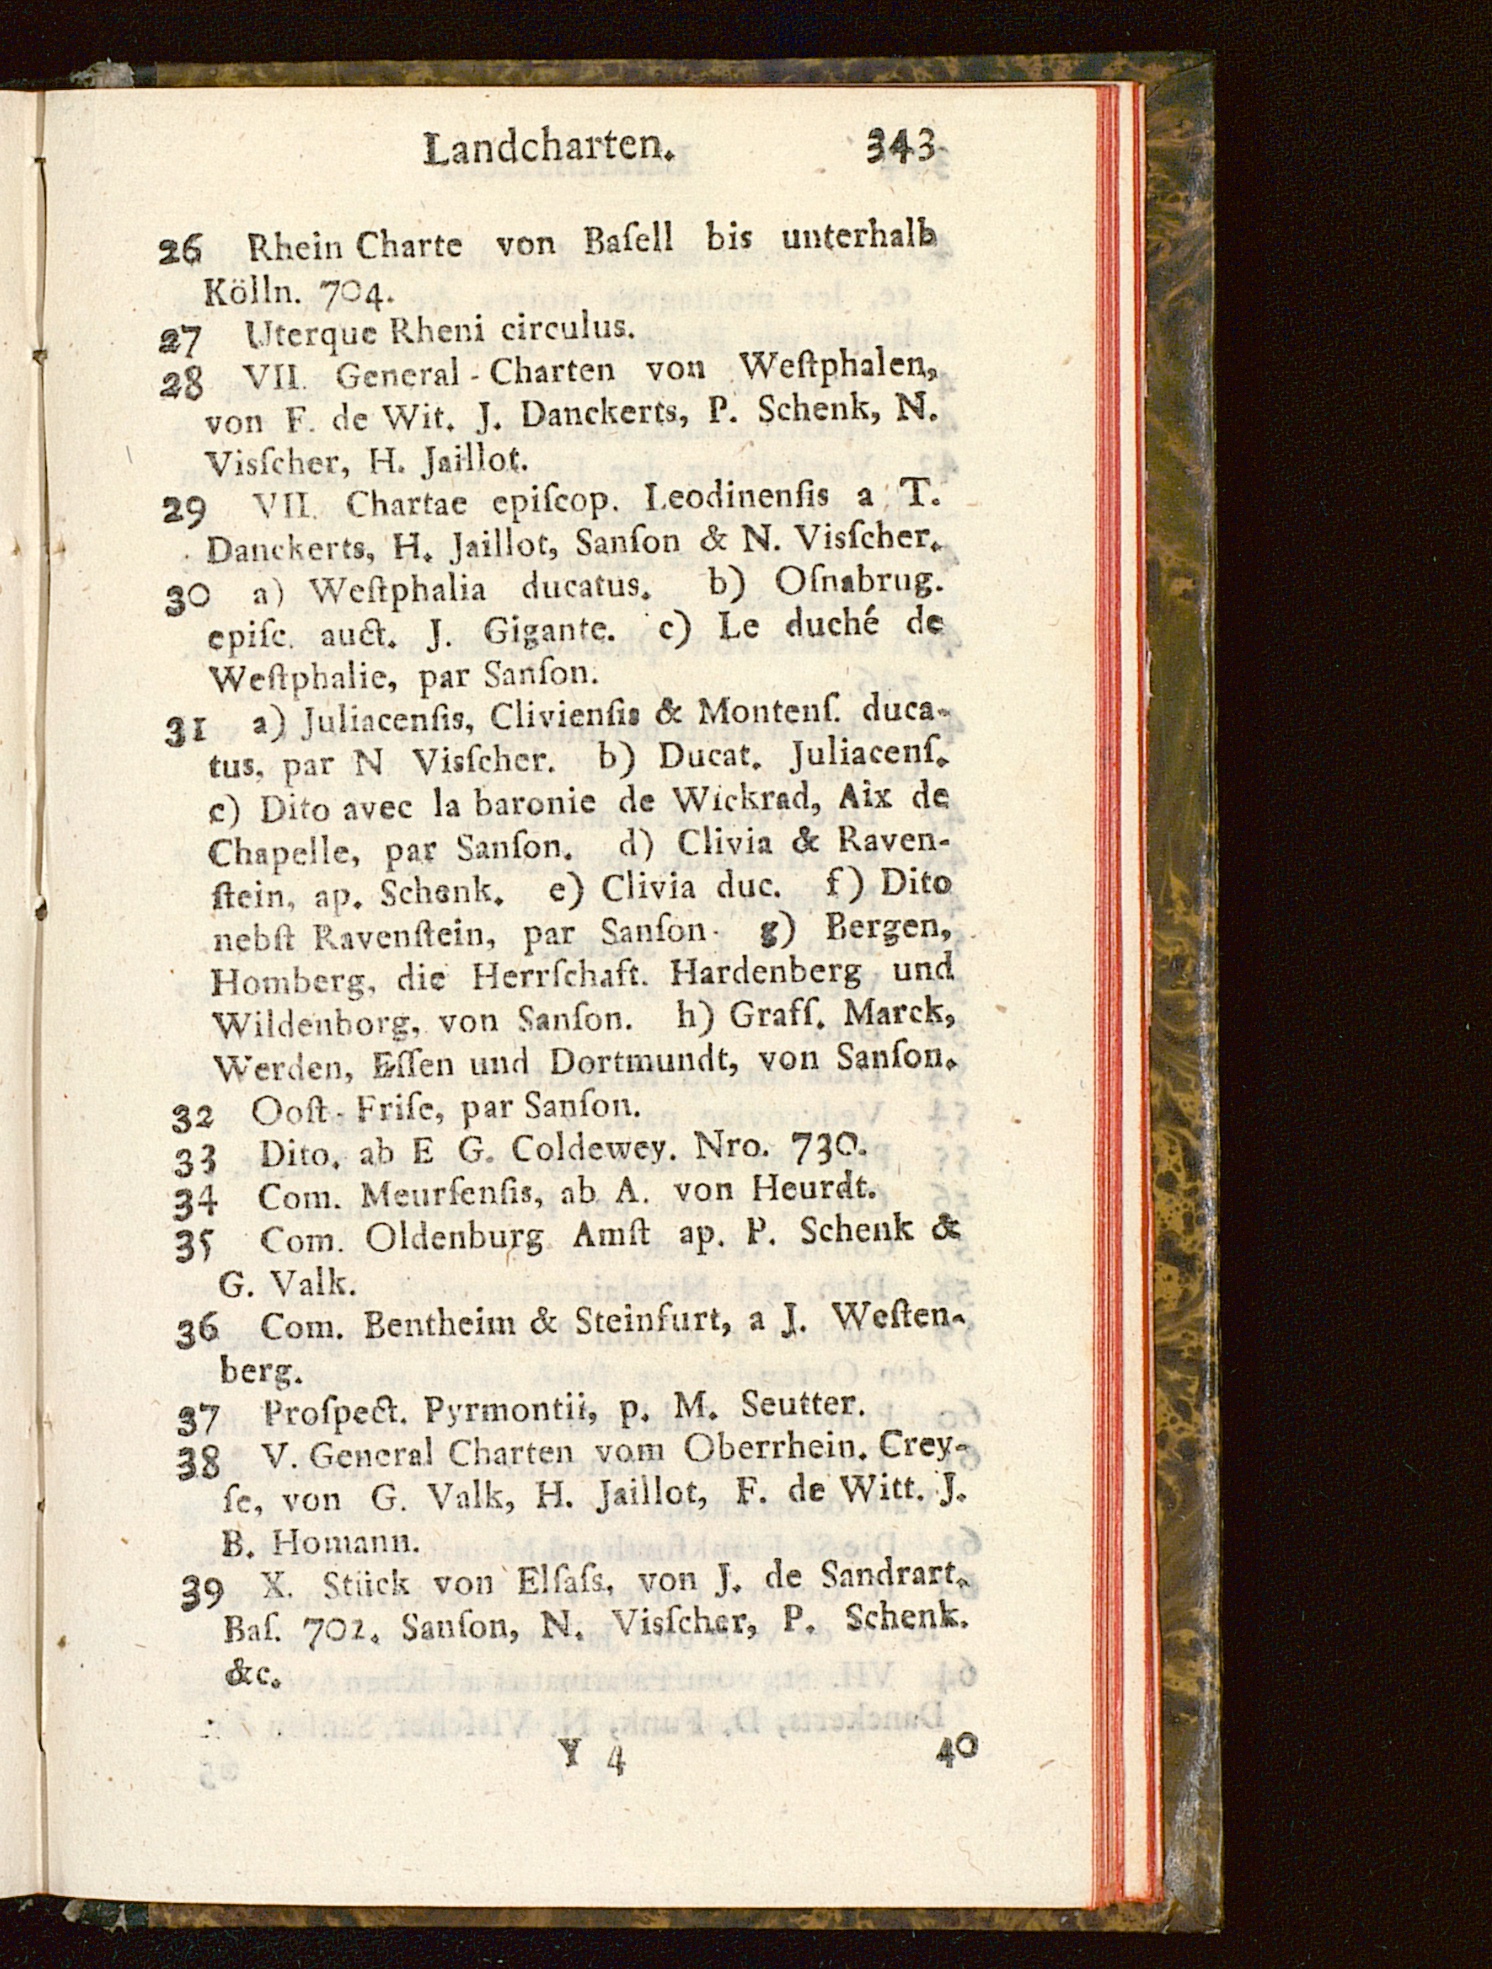 Landcharten. 343
26 Rhein Charte von Baſell bis unterhalb
Kölln. 704.
27 Uterque Rheni circulus.
28 VII. General-Charten von Weſtphalen,
von F. de Wit. J. Danckerts, P. Schenk, N.
Visſcher, H. Jaillot.
29 VII. Chartae epiſcop. Leodinenſis a T.
Danckerts, H. Jaillot, Sanſon & N. Visſcher.
30 a) Weſtphalia ducatus. b) Oſnabrug.
epiſc. auct. J. Gigante. c) Le duché de
Weſtphalie, par Sanſon.
31 a) Juliacenſis, Clivienſis & Montenſ. duca-
tus, par N Visſcher. b) Ducat. Juliacenſ.
c) Dito avec la baronie de Wickrad, Aix de
Chapelle, par Sanſon. d) Clivia & Raven-
ſtein, ap. Schenk. e) Clivia duc. f) Dito
nebſt Ravenſtein, par Sanſon. g) Bergen,
Homberg, die Herrſchaft. Hardenberg und
Wildenborg, von Sanſon. h) Graff. Marck,
Werden, Eſſen und Dortmundt, von Sanſon.
32 Ooſt-Friſe, par Sanſon.
33 Dito. ab E G. Coldewey. Nro. 730.
34 Com. Meurſenſis, ab A. von Heurdt.
35 Com. Oldenburg Amſt ap. P. Schenk &
G. Valk.
36 Com. Bentheim & Steinfurt, a J. Weſten-
berg.
37 Proſpect. Pyrmontii, p. M. Seutter.
38 V. General Charten vom Oberrhein. Crey-
ſe, von G. Valk, H. Jaillot, F. de Witt. J.
B. Homann.
39 X. Stück von Elſaſs, von J. de Sandrart.
Baſ. 702. Sanſon, N. Visſcher, P. Schenk.
&c.
Y 4 40